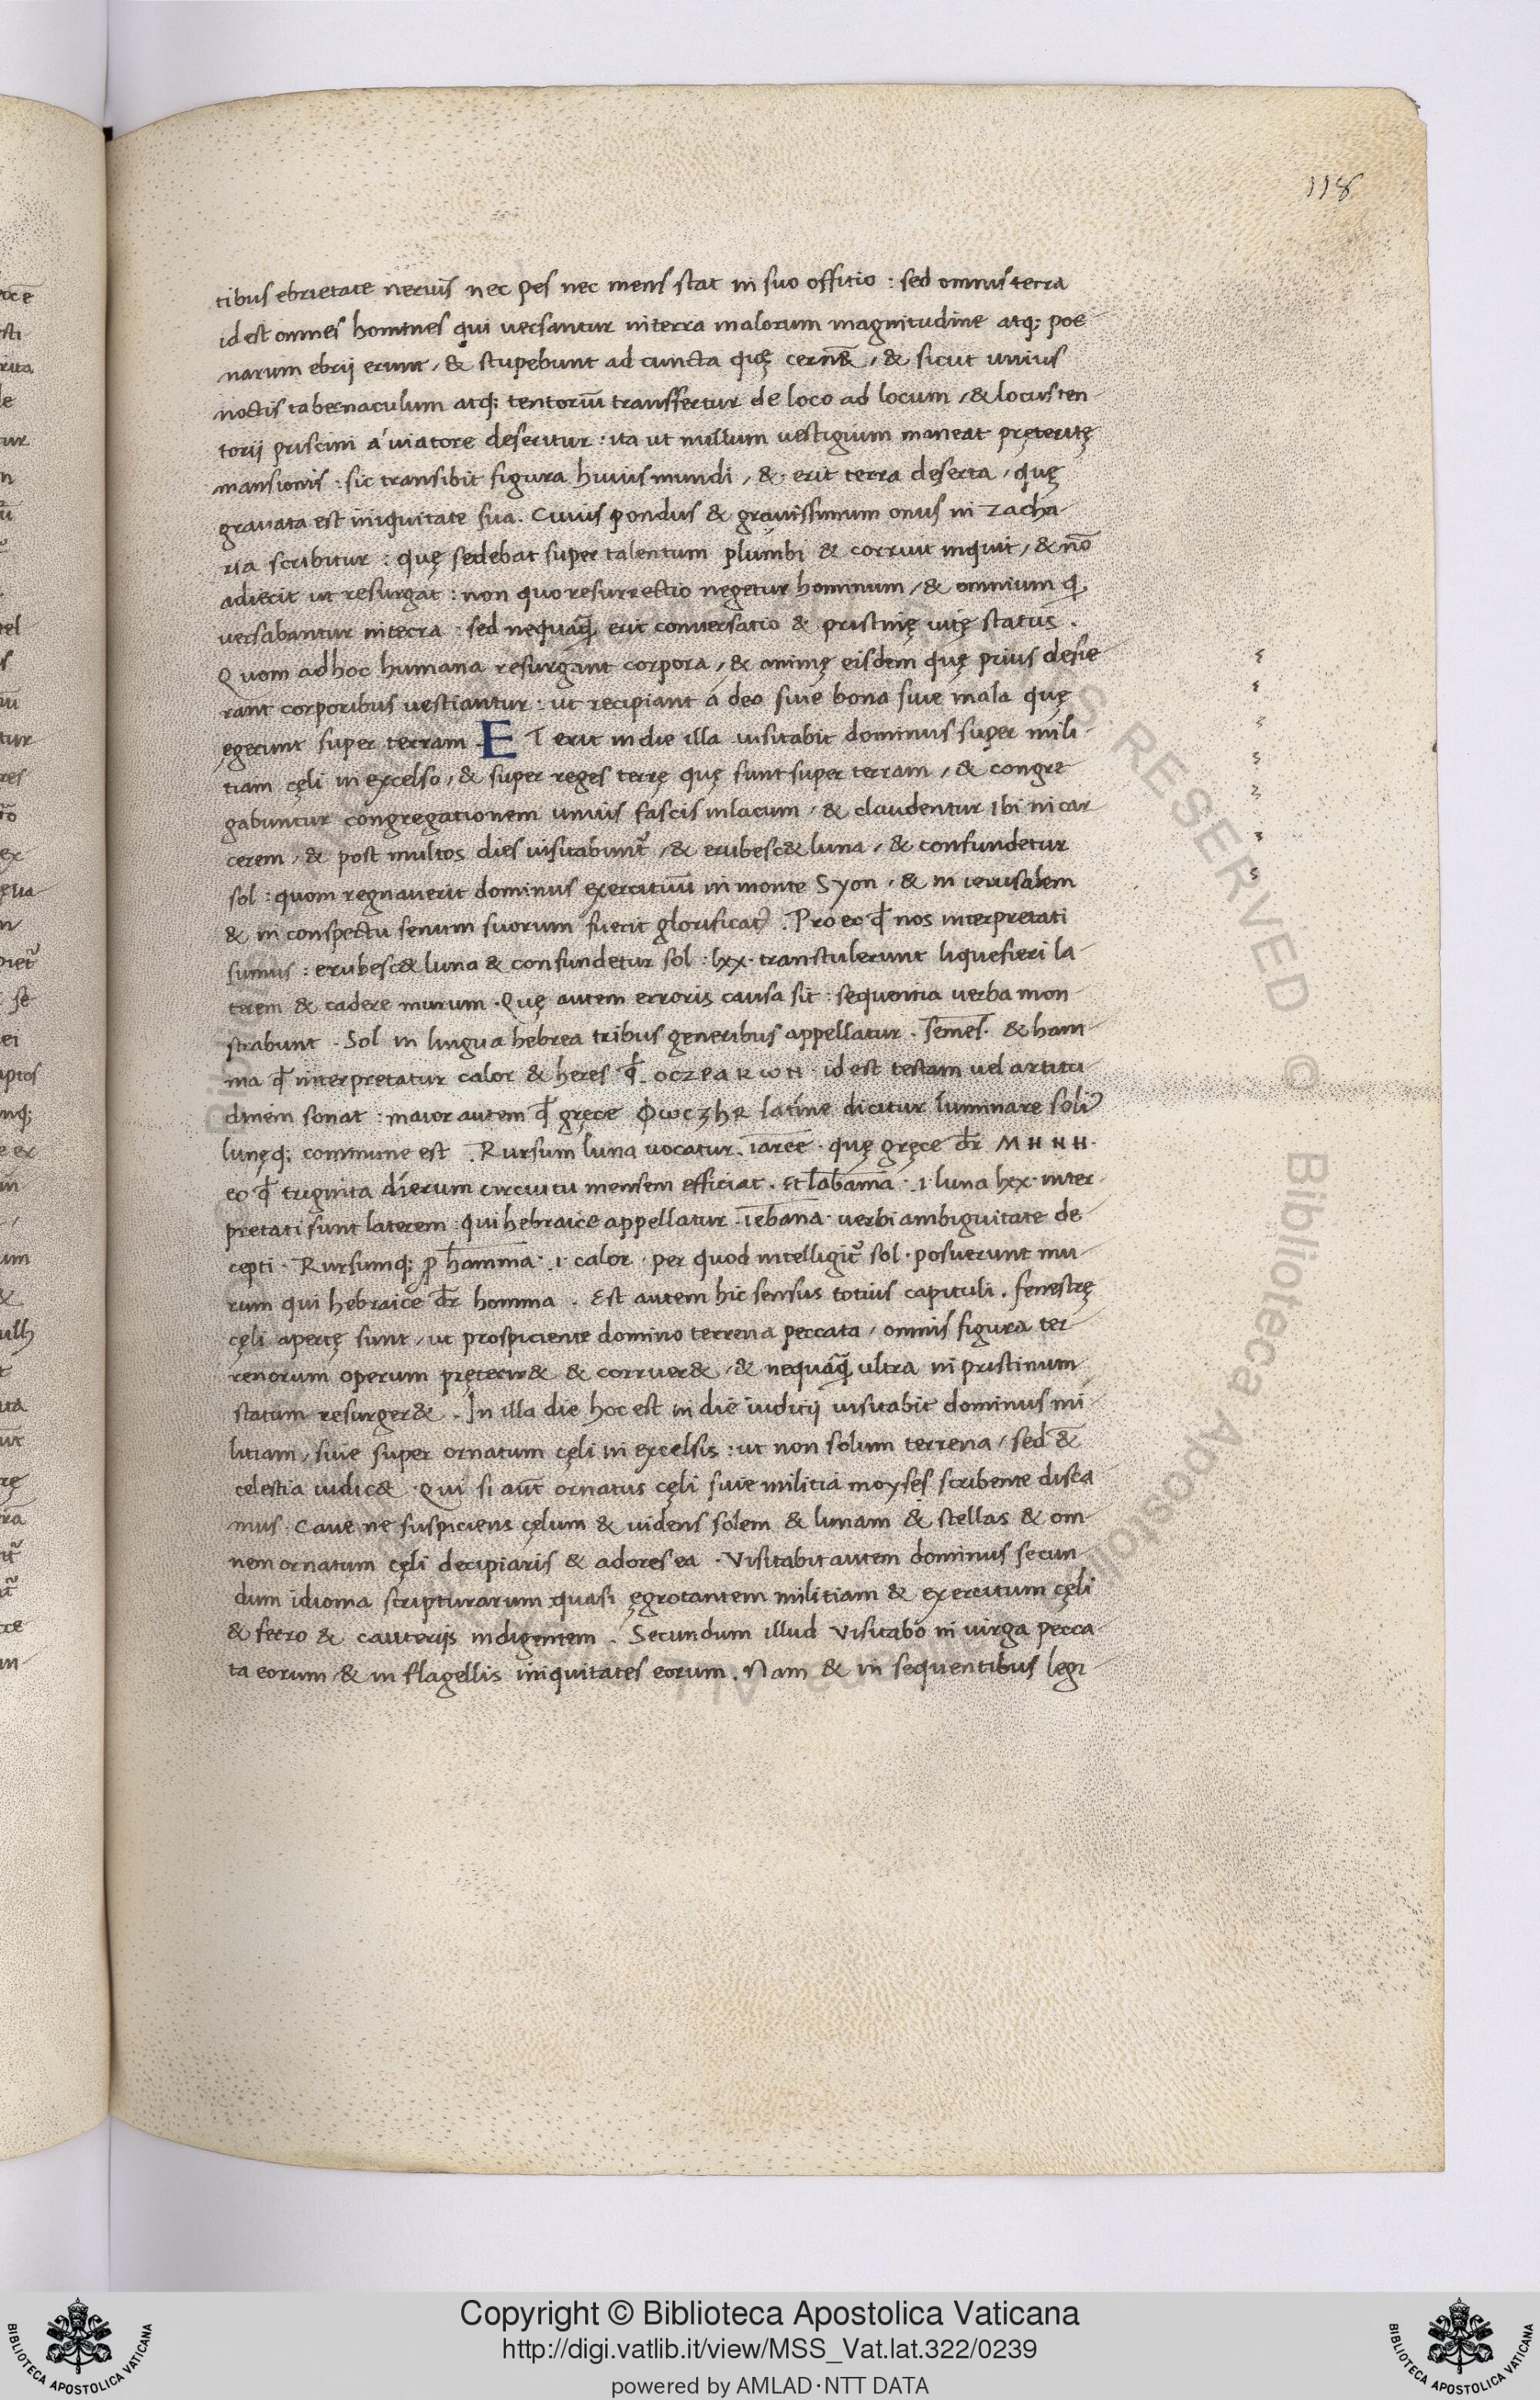 118
tibus ebrietate neruis nec pes nec mens stat in suo offitio : sed omnis terra
id est omnes homines qui uersantur in terra malorum magnitudine atq; poe
narum ebrij erunt, & stupebunt ad cuncta quę cern&, & sicut unius
noctis tabernaculum atq; tentoriū transfertur de loco ad locum, & locus ten
torij priscini á uiatore deseritur : ita ut nullum uestigium maneat pręteritę
mansionis : sic transibit figura huius mundi, & erit terra deserta, quę
grauata est iniquitate sua. Cuius pondus & grauissimum onus in Zacha
ria scribitur : quę sedebat super talentum plumbi & corruit inquit, & nō
adiecit ut resurgat : non quo resurrectio negetur hominum, & omnium q
uersabantur in terra : sed nequaq̄ erit conuersatio & pristinę uitę status.
Quom ad hoc humana resurgant corpora, & animę eisdem quę prius desie
rant corporibus uestiantur : ut recipiant á deo siue bona siue mala quę
egerunt super terram. ET erit in die illa uisitabit dominus super mili
tiam cęli in excelso, & super reges terrę quę sunt super terram, & congre
gabuntur congregationem unius fascis in lacum, & claudentur ibi in car
cerem, & post multos dies uisitabunt᷑, & erubesc& luna, & confundetur
sol : quom regnauerit dominus exercituū in monte Syon, & in ierusalem
& in conspectu senum suorum fuerit glorificat᷒. Pro eo qđ nos interpretati
sumus : erubesc& luna & confundetur sol : lxx. transtulerunt liquefieri la
terem & cadere murum. Quę autem erroris causa sit : sequentia uerba mon
strabunt. Sol in lingua hebrea tribus generibus appellatur. semes. & ham
ma qđ interpretatur calor & heres qđ. OCZPAKωN. id est testam uel artitu
dinem sonat : maior autem qđ gręce ΦωCZHR latine dicitur luminare soli᷒
lunęq; commune est. Rursum luna uocatur. iaree. quę gręce dr̄ MHNH.
eo qđ triginta dierum circuitu mensem efficiat. Et labama. i. luna lxx. inter
pretati sunt laterem : qui hebraice appellatur. iebana. uerbi ambiguitate de
cepti. Rursumq; ꝓ hamma. i. calor. per quod intelligit᷑ sol. posuerunt mu
rum qui hebraice dr̄ homma. Est autem hic sensus totius capituli. fenestrę
cęli apertę sunt, ut prospiciente domino terrena peccata, omnis figura ter
renorum operum pręterir& & corruer&, & nequaq̄ ultra in pristinum
statum resurger&. In illa die hoc est in die iuditij uisitabit dominus mi
litiam, siue super ornatum cęli in excelsis : ut non solum terrena, sed &
celestia iudic&. Qui si aūt ornatus cęli siue militia moyses scribente disca
mus. Caue ne suspiciens cęlum & uidens solem & lunam & stellas & om
nem ornatum cęli decipiaris & adores ea. Visitabit autem dominus secun
dum idioma scripturarum quasi ęgrotantem militiam & exercitum cęli
& ferro & cauterijs indigentem. Secundum illud Visitabo in uirga pecca
ta eorum & in flagellis iniquitates eorum. Nam & in sequentibus legi
Copyright © Biblioteca Apostolica Vaticana
http://digi.vatlib.it/view/MSS_Vat.lat.322/0239
powered by AMLAD·NTT DATA
BIBLIOTECA APOSTOLICA VATICANA
BIBLIOTECA APOSTOLICA VATICANA